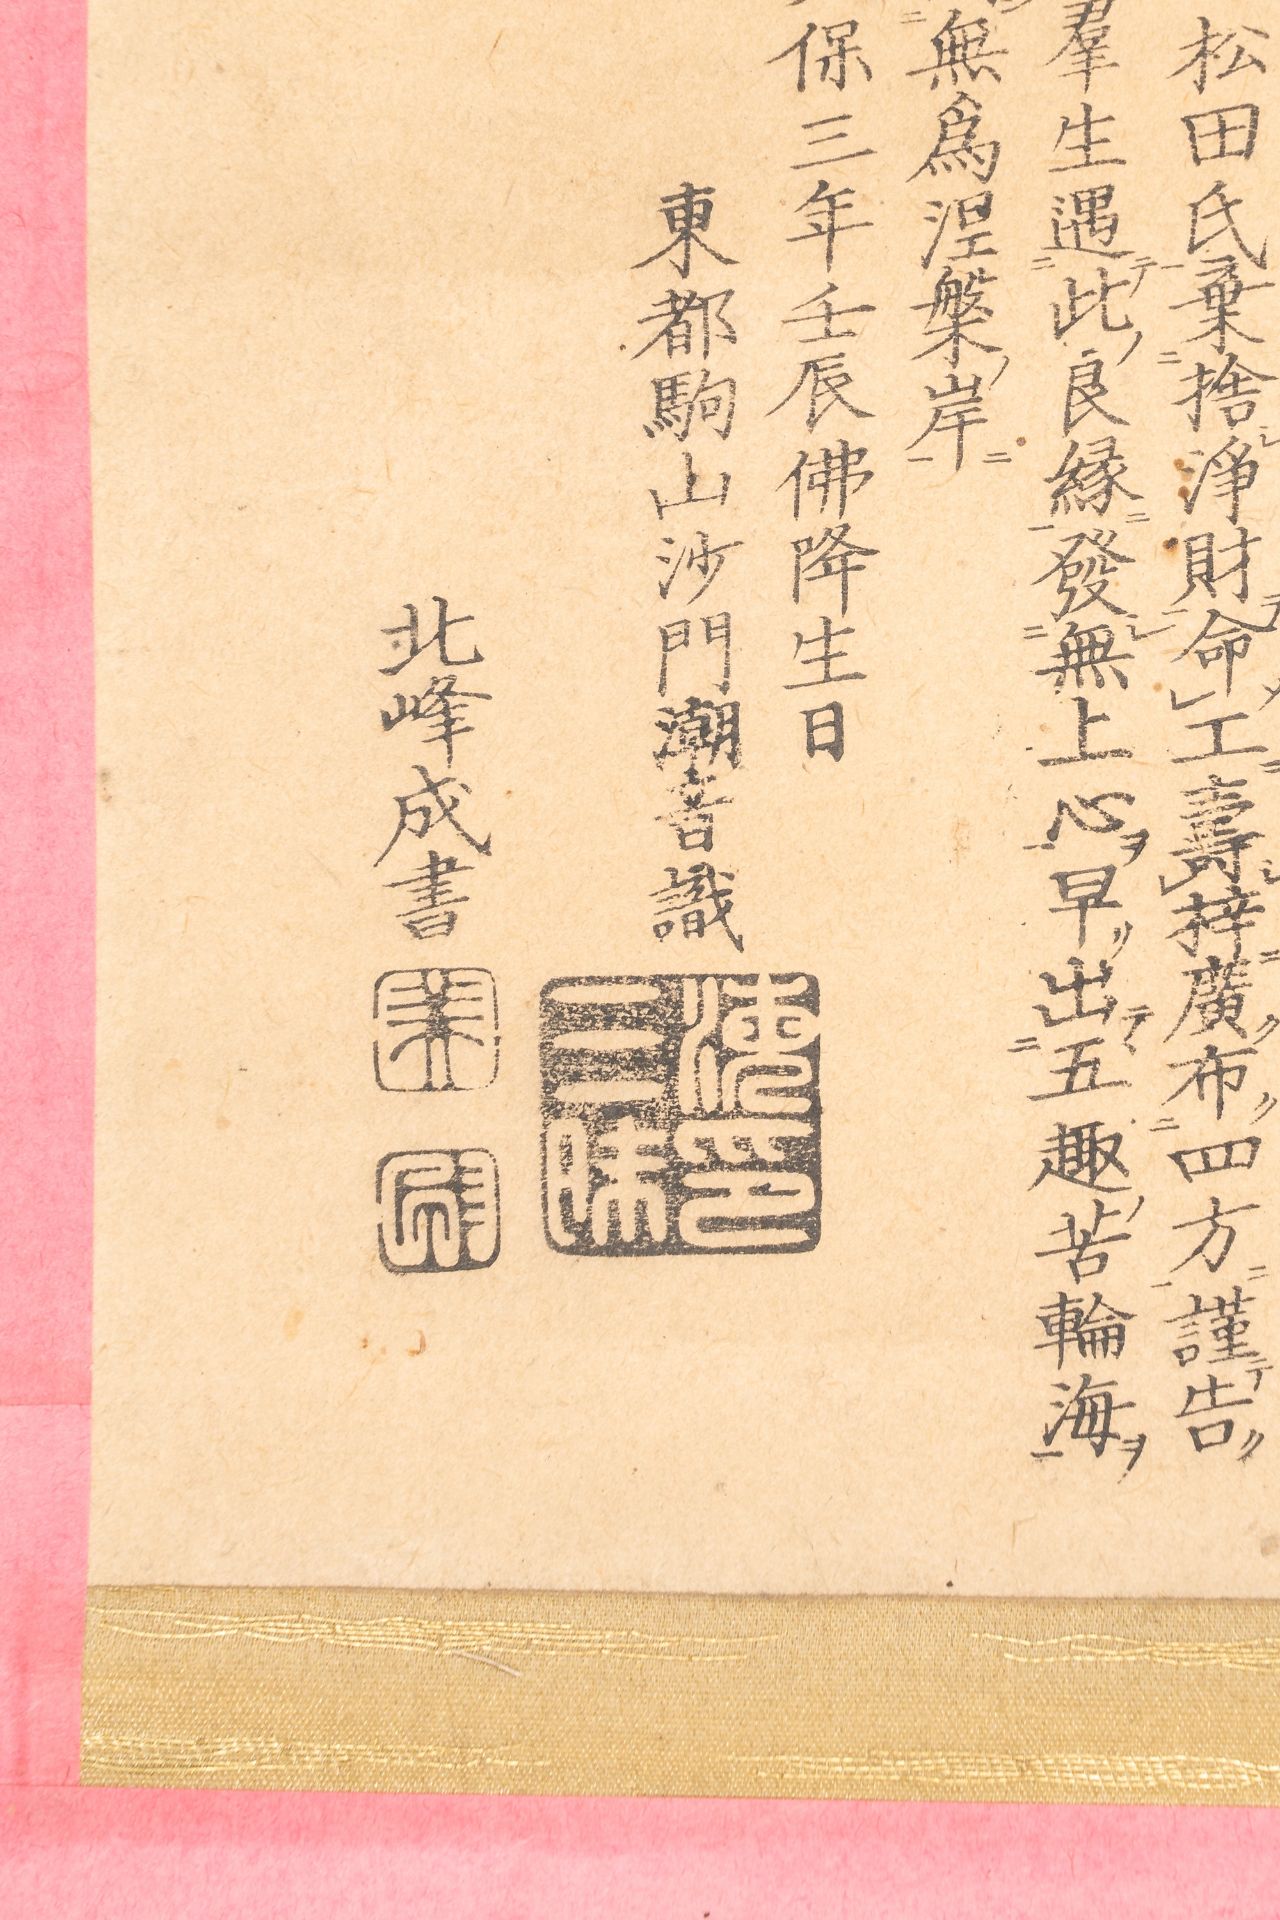 松田氏棄捨淨財命工壽梓廣布四方謹告
羣生遇此良縁發無上心早出五趣苦輪海
無為涅槃岸
保三年壬辰佛降生日
東都駒山沙門潮音識
北峰成書
三味